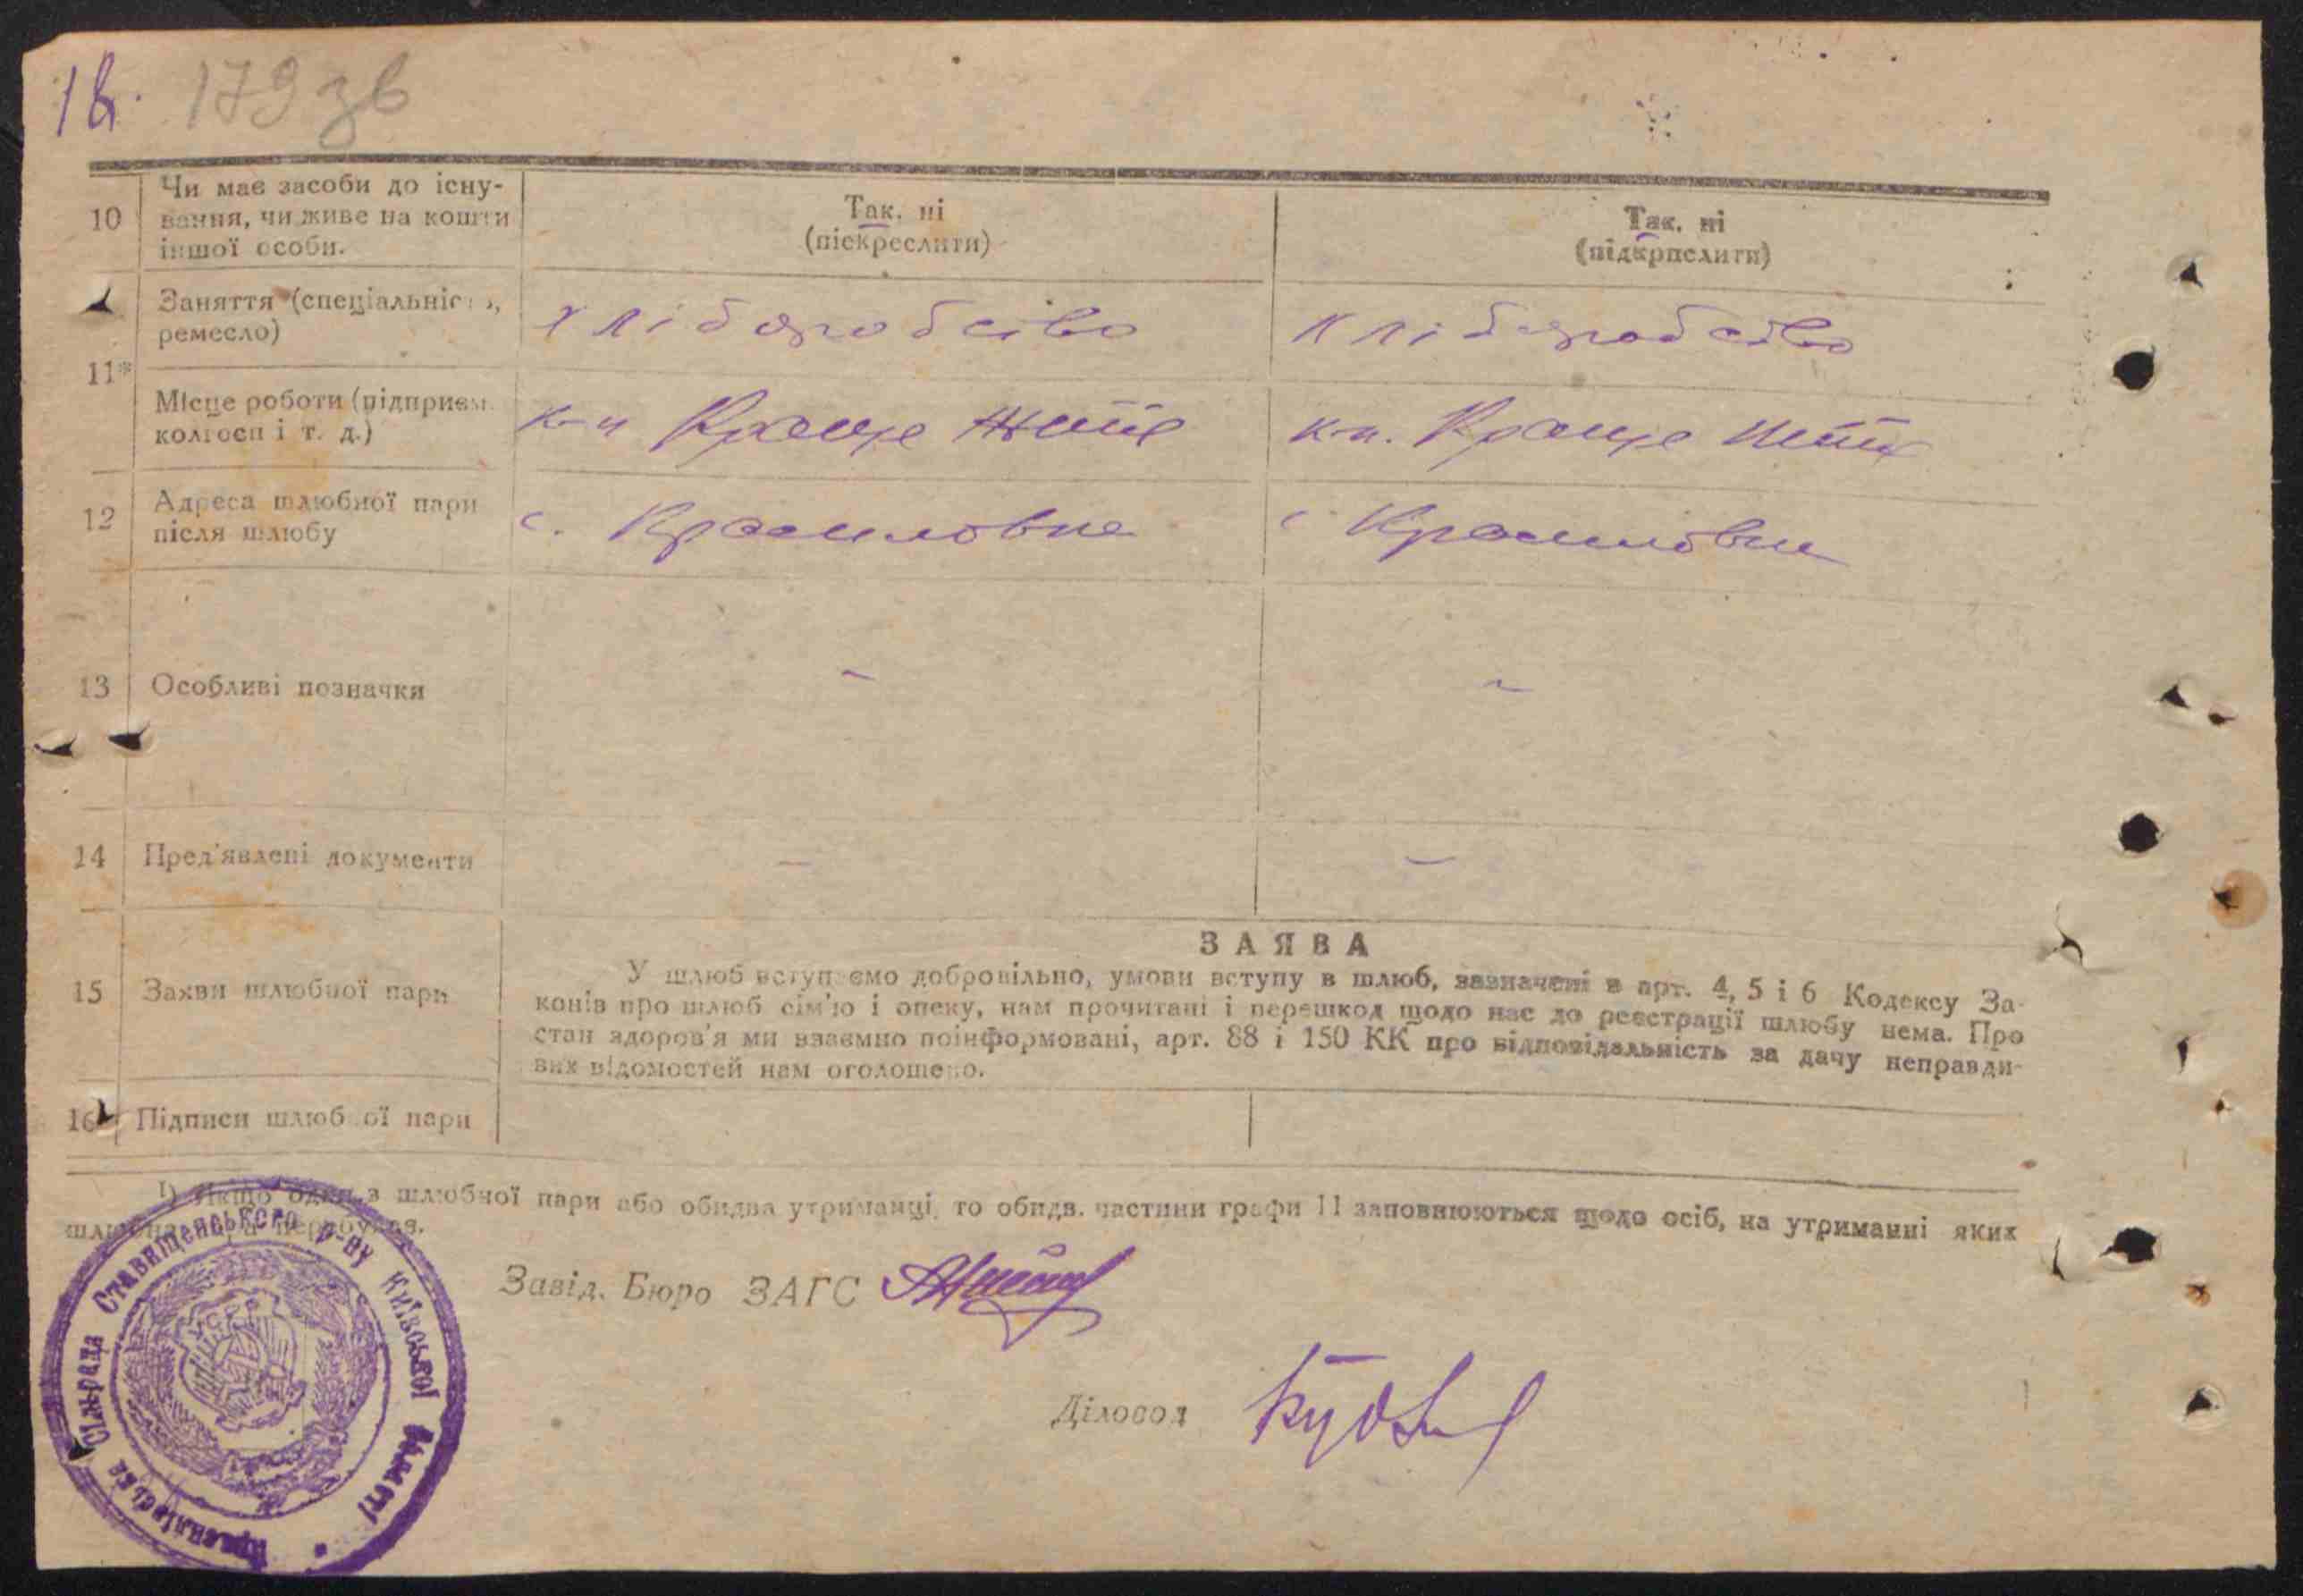 179 зв
10
Чи має засоби до існу-
вання, чи живе на кошти
іншої особи.
Так. ні
(піекреслити)
Так. ні
(підкрпслити)
11*
Заняття (спеціальність,
ремесло)
хліборобство
хліборобство
Місце роботи (підприєм.
колгосп і т. д.)
к-п Краще Життє
к-п. Краще Життє
12
Адреса шлюбної пари
після шлюбу
с. Красиловка
с. Красиловка
13
Особливі позначки
–
–
14
Пред'явлені документи
–
–
15
Заяви шлюбної пари
ЗАЯВА
У шлюб вступаємо добровільно, умови вступу в шлюб, зазначені в арт. 4, 5 і 6 Кодексу За-
конів про шлюб сім'ю і опеку, нам прочитані і перешкод щодо нас до реєстрації шлюбу нема. Про
стан здоров'я ми взаємно поінформовані, арт. 88 і 150 КК про відповідальність за дачу неправди-
вих відомостей нам оголошено.
16
Підписи шлюбної пари
¹) Якщо один з шлюбної пари або обидва утриманці, то обидв. частини графи 11 заповнюються щодо осіб, на утриманні яких
шлюбна пара перебував.
Завід. Бюро ЗАГС
Діловод
Сільрада Ставищенського р-ну Київської області
УСРР